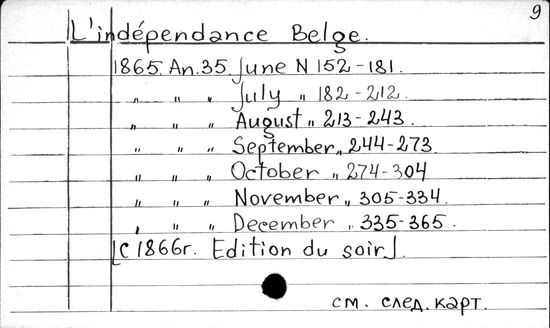 9
L'indépendance Belge.
1865. An. 35. June N 152-181.
„ „ „ July „ 182-212.
„ „ „ August „ 213-243.
„ „ „ September „ 244-273.
„ „ „ October „ 274-304
„ „ „ November „ 305-334.
„ „ „ December „ 335-365.
[С 1866г. Edition du soir].
см. след. карт.